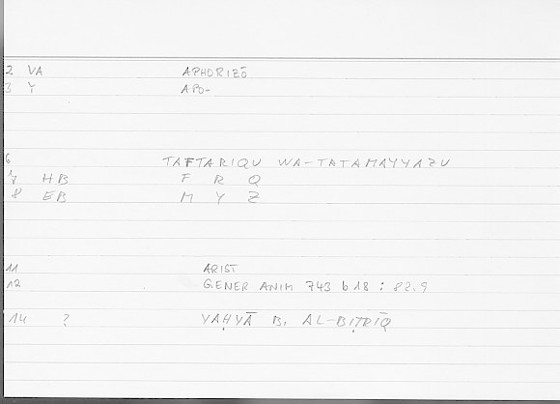 2 VA APHORIZŌ
3 Y APO-
6 TAFTARIQU WA-TATAMAYYAZU
7 HB F R Q
8 EB M Y Z
11 ARIST
12 GENER ANIM 743 b 18 : 82.9
14 ? YAḤYĀ B. AL-BIṬRĪQ